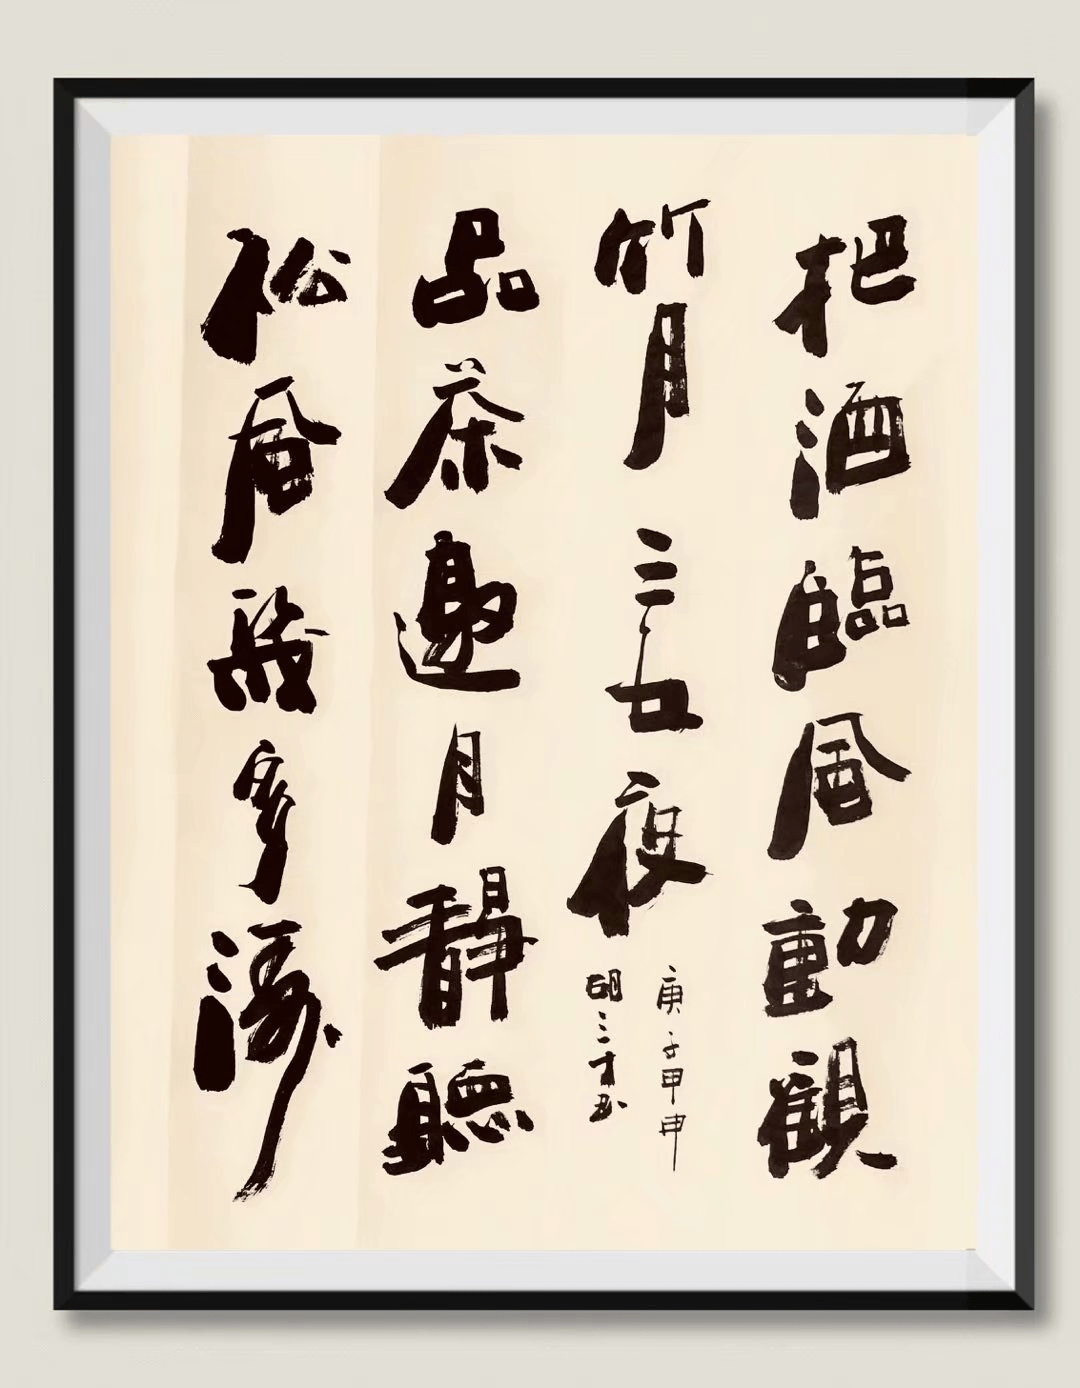 把酒臨風動觀
竹月三五夜
庚子甲申
胡三才书
品茶邀月靜聽
松風多濤